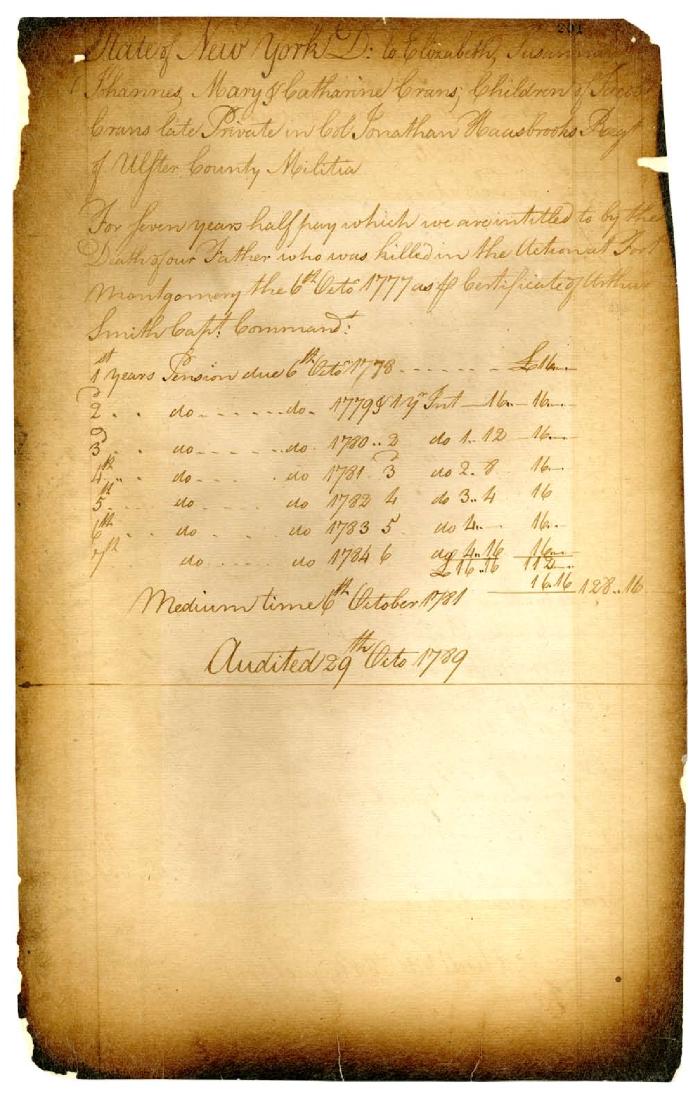 201
State of New York Dr. to Elizabeth, Susanna
Johannes, Mary & Catharine Crans; Children of
Crans late Private in Col Jonathan Haasbrooks Regt
of Ulster County Militia
For seven years half pay which we are intitled to by the
Death of our Father who was killed in the Action at Fort
Montgomery the 6th Octo 1777 as pr Certificate of Arthur
Smith Capt. Command.t
1st years Pension due 6th Octo 1778 - - - - - - - £16..—
2d .. do - - - - - do - 1779 & 1 yr Int — 16.. 16..—
3d .. do - - - - do 1780 .. 2 do 1 .. 12 16..—
4th .. do - - - - do 1781 . 3 do 2 . 8 16..—
5th do - - - do 1782 4 do 3 .. 4 16
6th do - - - - do 1783 5 do 4..— 16..—
7th do - - - - do 1784 6 do 4 .. 16 16..—
£16 .. 16 112 ..
16.16 128 .. 16
Medium time 6th October 1781
Audited 29th Octo 1789